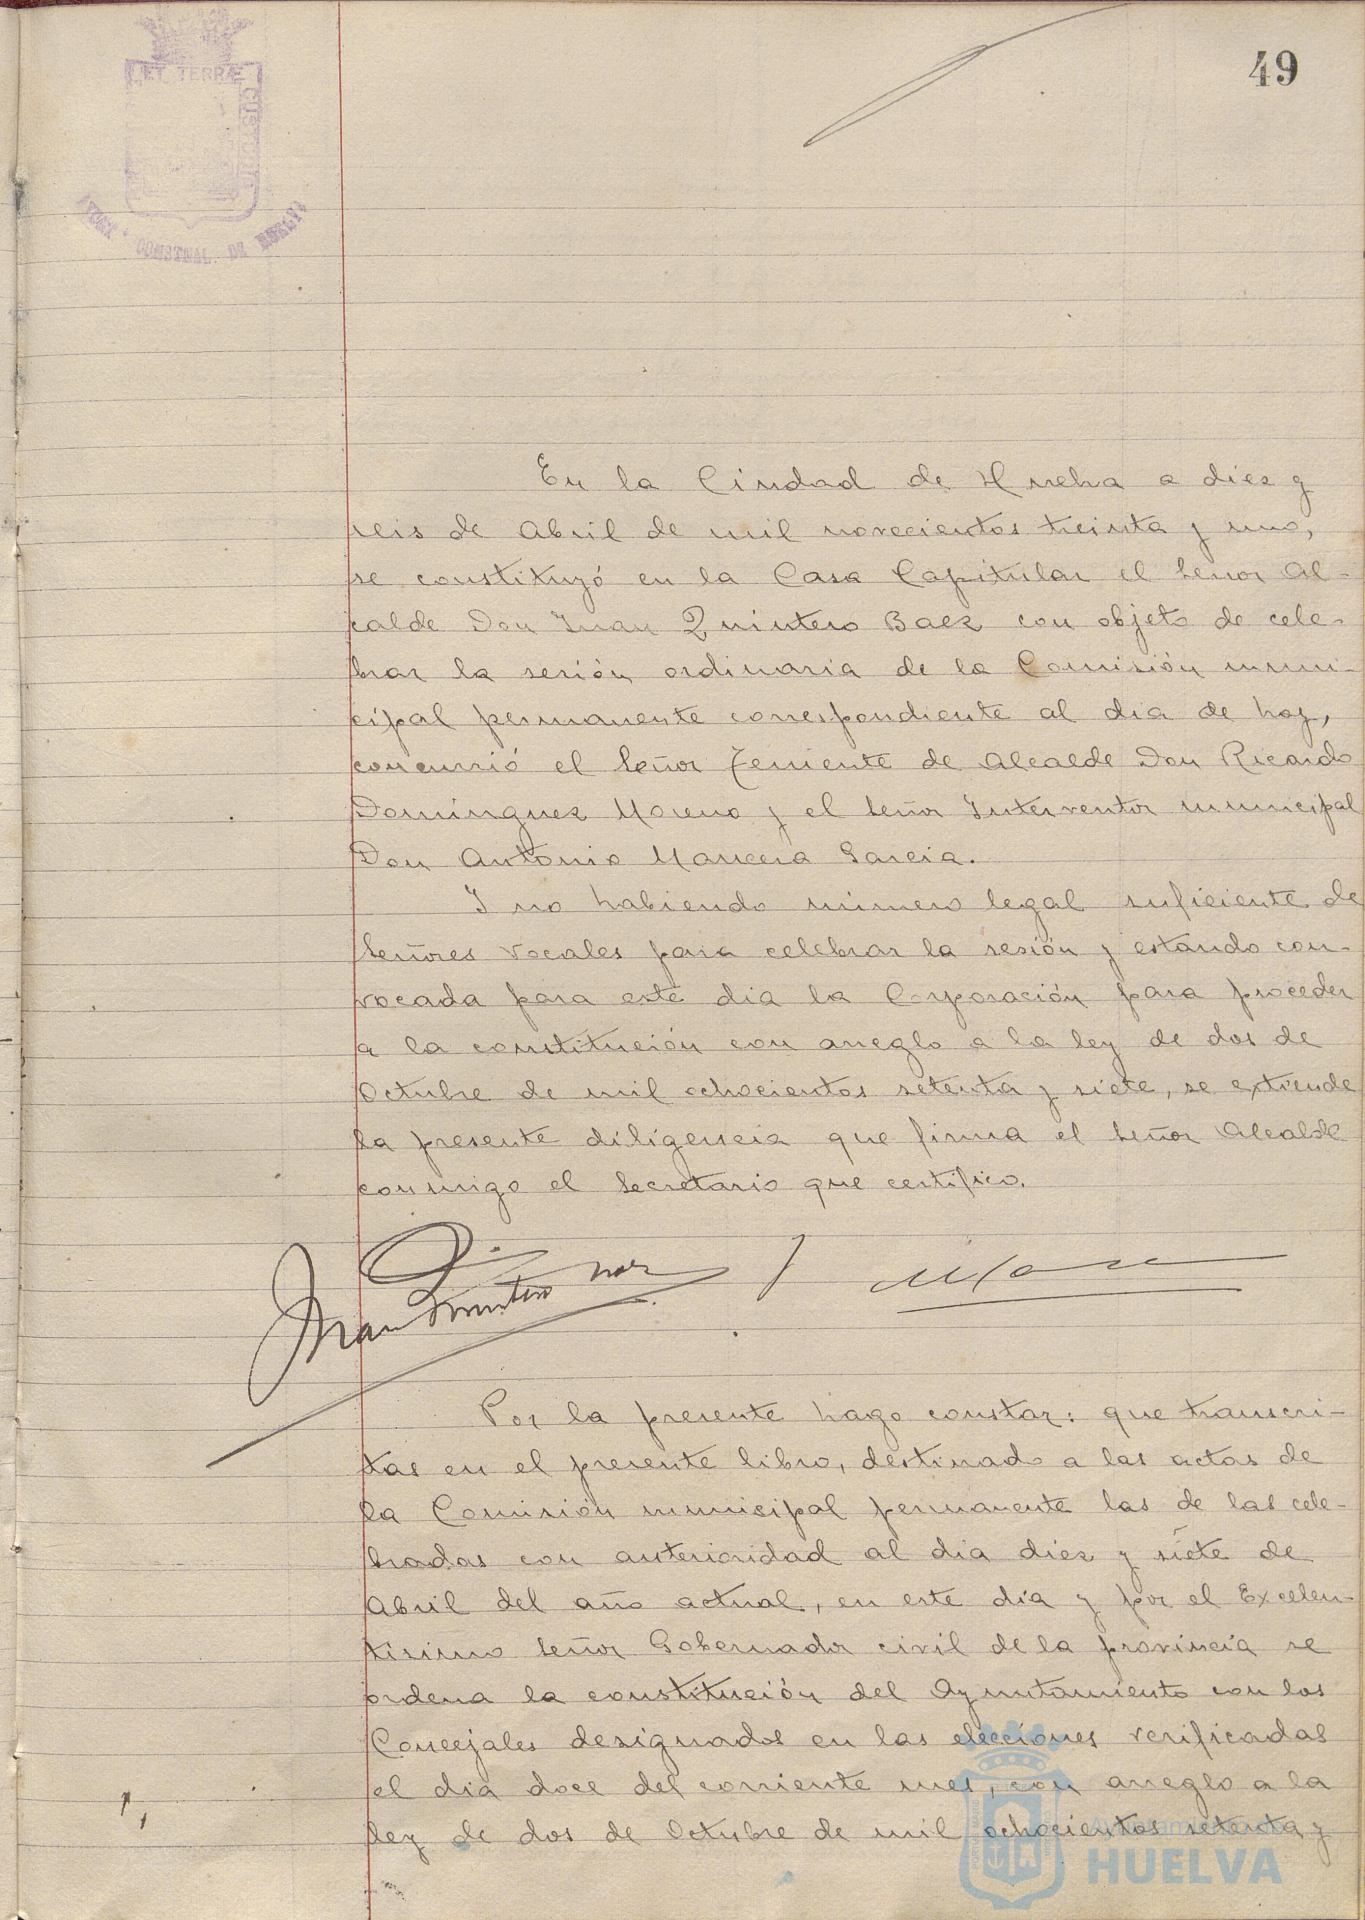 49
ET TERRÆ
CUSTODIT
CONSTNAL. DE HUELVA
En la Ciudad de Huelva a diez y
seis de Abril de mil novecientos treinta y uno,
se constituyó en la Casa Capitular el Señor Al-
calde Don Juan Quintero Baez con objeto de cele-
brar la sesión ordinaria de la Comisión muni-
cipal permanente correspondiente al dia de hoy,
concurrió el Señor Teniente de Alcalde Don Ricardo
Dominguez Moreno y el Señor Interventor municipal
Don Antonio Mancera Garcia.
Y no habiendo número legal suficiente de
Señores Vocales para celebrar la sesión y estando con-
vocada para este dia la Corporación para proceder
a la constitución con arreglo a la ley de dos de
Octubre de mil ochocientos setenta y siete, se extiende
la presente diligencia que firma el Señor Alcalde
conmigo el Secretario que certifico.
Juan Quintero
Por la presente hago constar: que transcri-
tas en el presente libro, destinado a las actas de
la Comisión municipal permanente las de las cele-
bradas con anterioridad al dia diez y siete de
Abril del año actual, en este dia y por el Excelen-
tisimo Señor Gobernador civil de la provincia se
ordena la constitución del Ayuntamiento con los
Concejales designados en las elecciones verificadas
el dia doce del corriente mes, con arreglo a la
ley de dos de Octubre de mil ochocientos setenta y
Ayuntamiento de
HUELVA